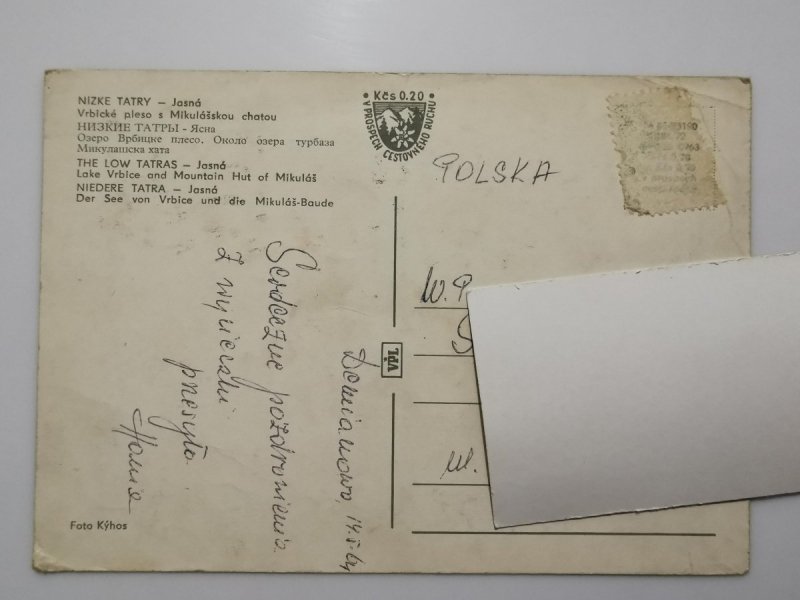 NIZKE TATRY – Jasná
Vrbické pleso s Mikulášskou chatou
НИЗКИЕ ТАТРЫ - Ясна
Озеро Врбицке плесо. Около озера турбаза
Микулашска хата
THE LOW TATRAS – Jasná
Lake Vrbice and Mountain Hut of Mikuláš
NIEDERE TATRA – Jasná
Der See von Vrbice und die Mikuláš-Baude
• Kčs 0.20 •
V PROSPECH CESTOVNÉHO RUCHU
POLSKA
W. P.
ul.
VPL
Demianowo, 14.
Serdeczne pozdrowienia
z wycieczki
przesyła
Foto Kýhos